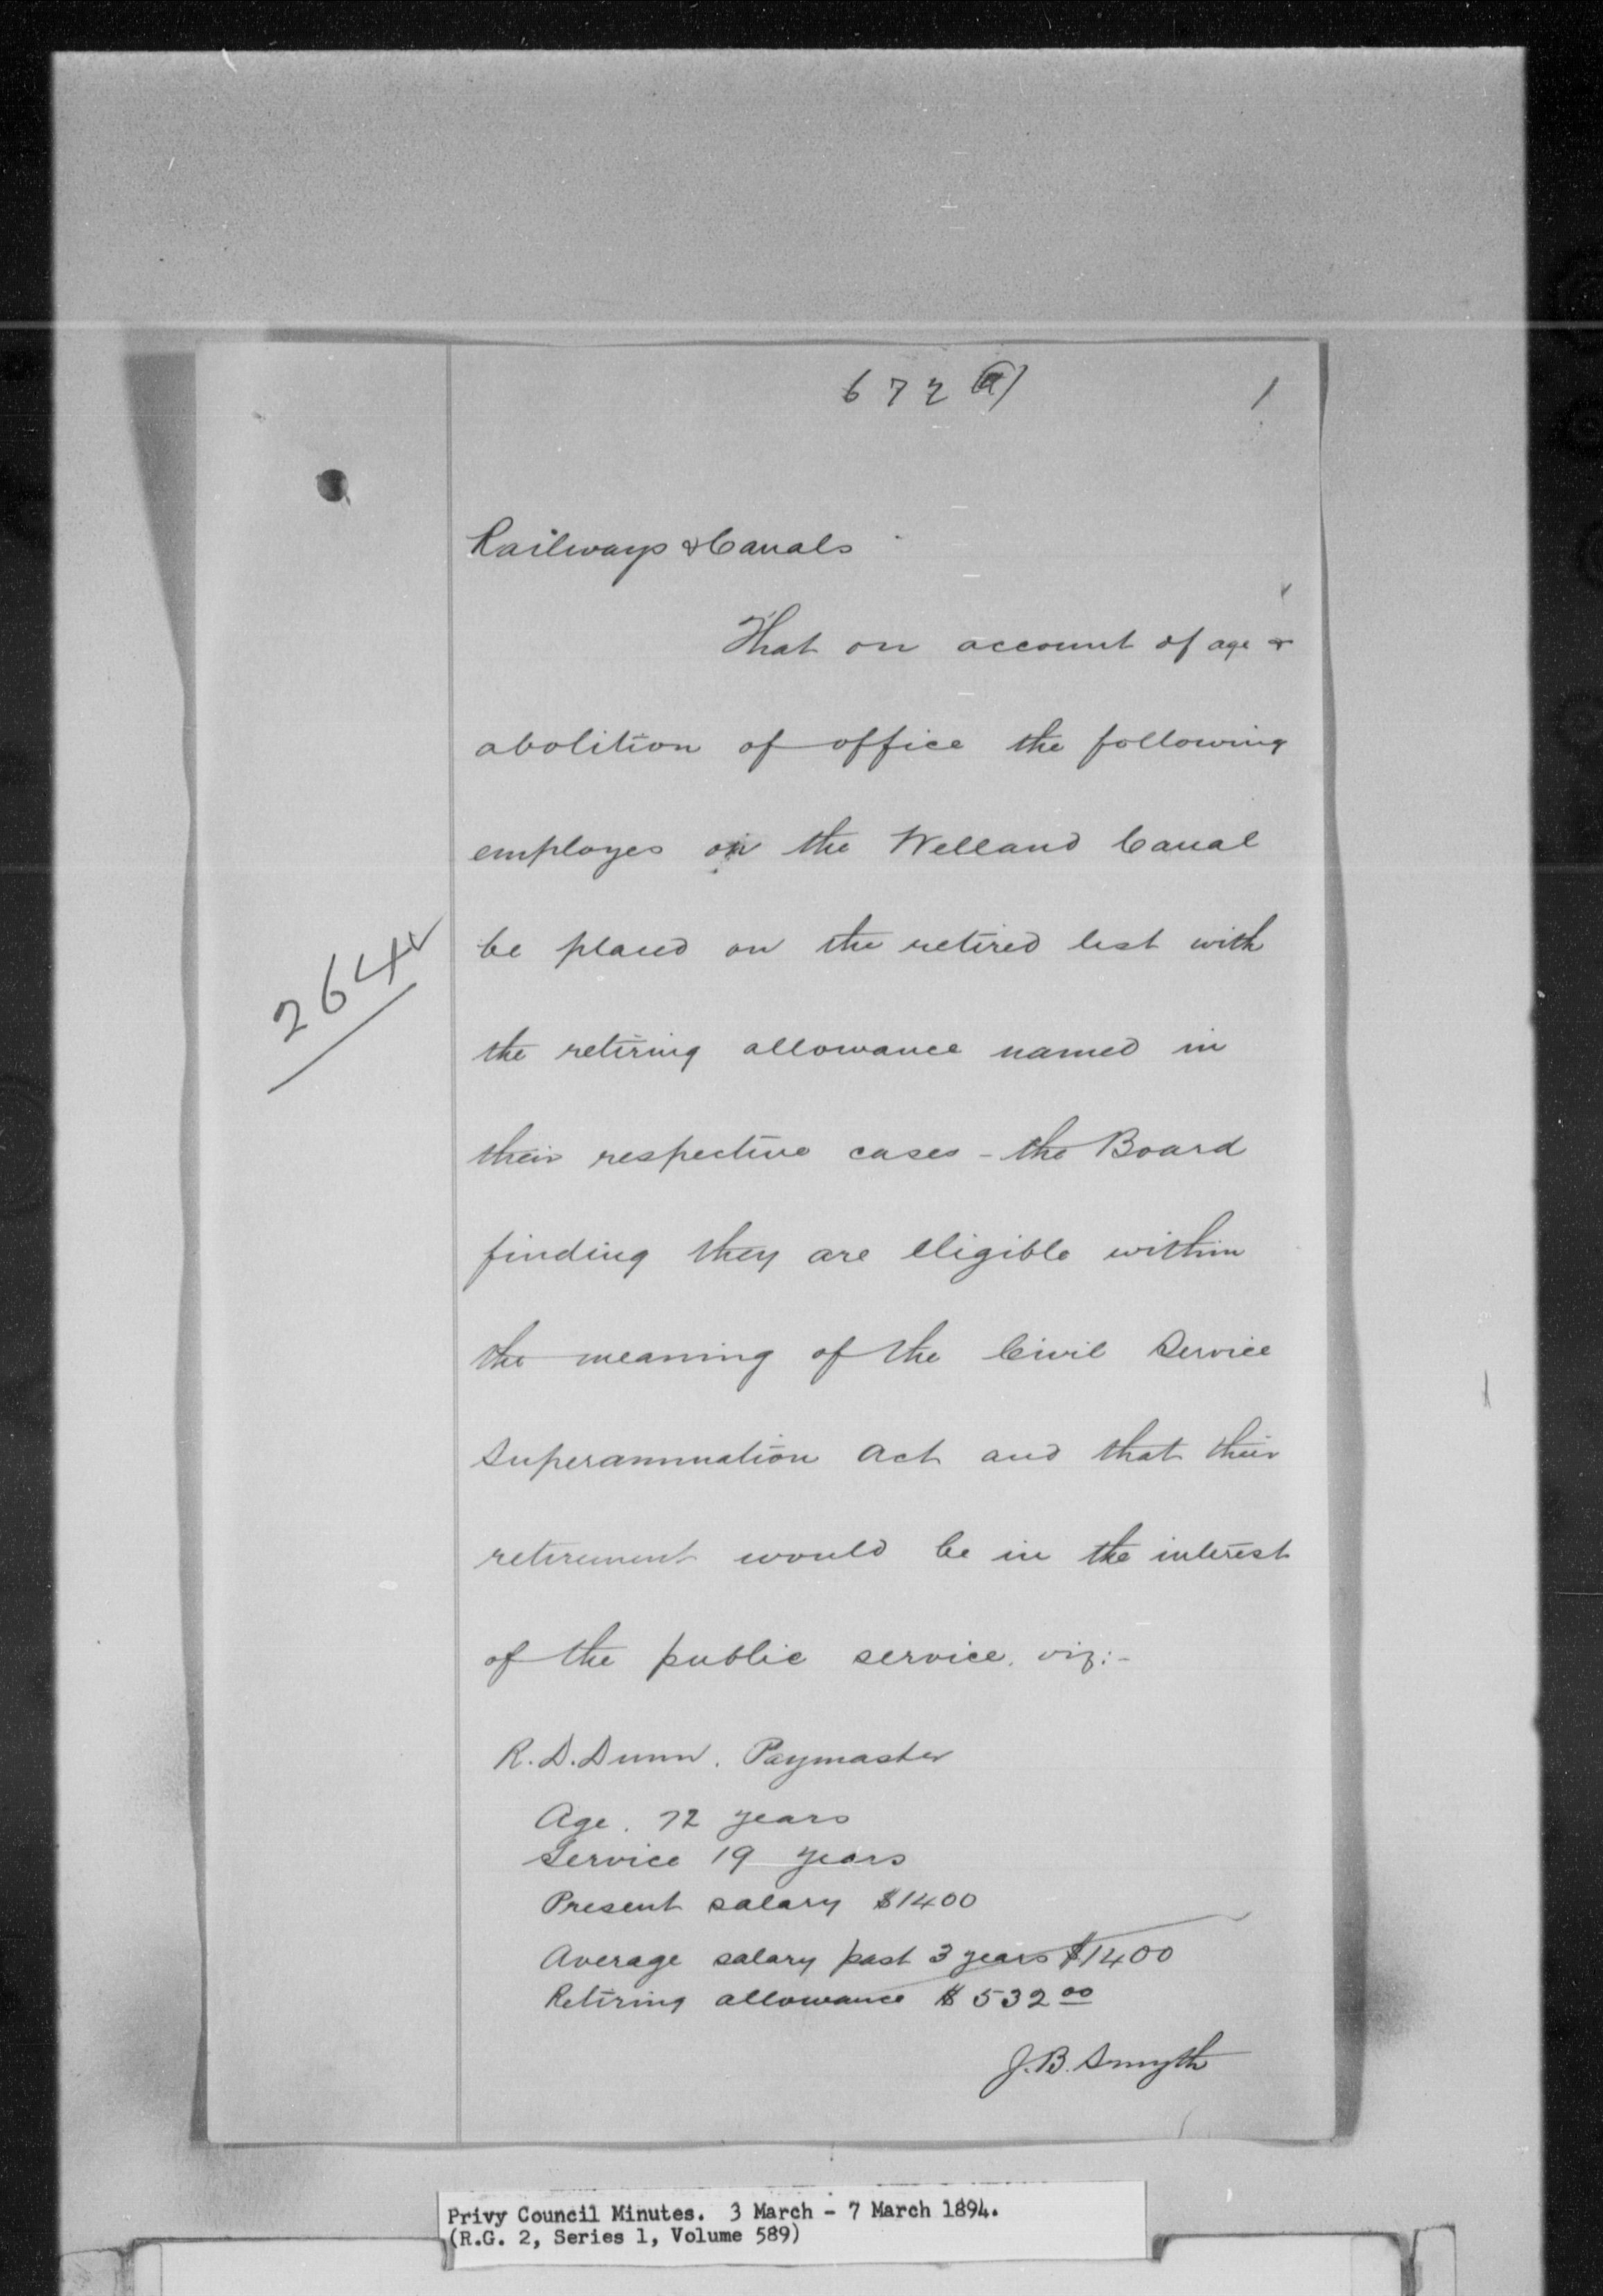 672 (a)
1
Railways & Canals
That on account of age &
abolition of office the following
employes on the Welland Canal
be placed on the retired list with
264
the retiring allowance named in
their respective cases - the Board
finding they are eligible within
the meaning of the Civil Service
Superannuation Act and that their
retirement would be in the interest
of the public service. viz:-
R. D. Dunn. Paymaster
Age. 72 years
Service 19 years
Present salary $1400
Average salary past 3 years $1400
Retiring allowance $532 00
J. B. Smyth
Privy Council Minutes. 3 March - 7 March 1894.
(R.G. 2, Series 1, Volume 589)